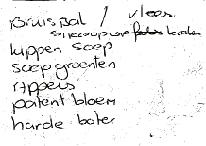 Bruisbal / vlees
kippen soep
soepgroenten
rippers
patent bloem
harde boter